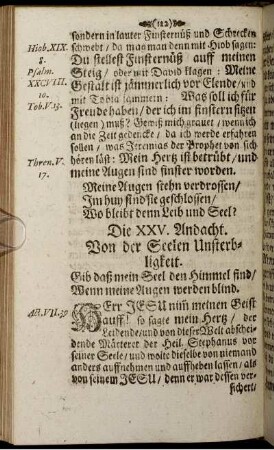 (112)
sondern in lauter Finsternüß und Schrecken
Hiob. XIX. 8. schwebt / da mag man denn mit Hiob sagen:
Du stellest Finsternüß auff meinen
Psalm. XXCVIII. 10. Steig / oder mit David klagen: Meine
Gestalt ist jämmerlich vor Elende / und
Tob. V. 13. mit Tobia jammern: Was soll ich für
Freude haben / der ich im finstern sitzen
(liegen) muß? Gewiß mich grauet / wenn ich
an die Zeit gedencke / da ich werde erfahren
sollen / was Jeremias der Prophet von sich
Thren. V. 17. hören läst: Mein Hertz ist betrübt / und
meine Augen sind finster worden.
Meine Augen stehn verdrossen /
Im huy sind sie geschlossen /
Wo bleibt denn Leib und Seel?
Die XXV. Andacht.
Von der Seelen Unsterb-
ligkeit.
Gib daß mein Seel den Himmel find /
Wenn meine Augen werden blind.
Act. VII. 59 HErr JESU nim̃ meinen Geist
auff! so sagte mein Hertz / der
Leidende / und von dieser Welt abschei-
dende Märterer der Heil. Stephanus vor
seiner Seele / und wolte dieselbe von niemand
anders auffnehmen und auffheben lassen / als
von seinem JESU / denn er war dessen ver-
sichert /